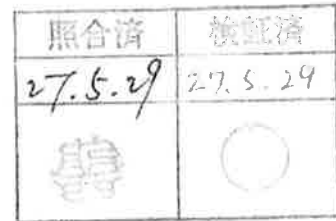 照合済 検証済
27.5.29 27.5.29